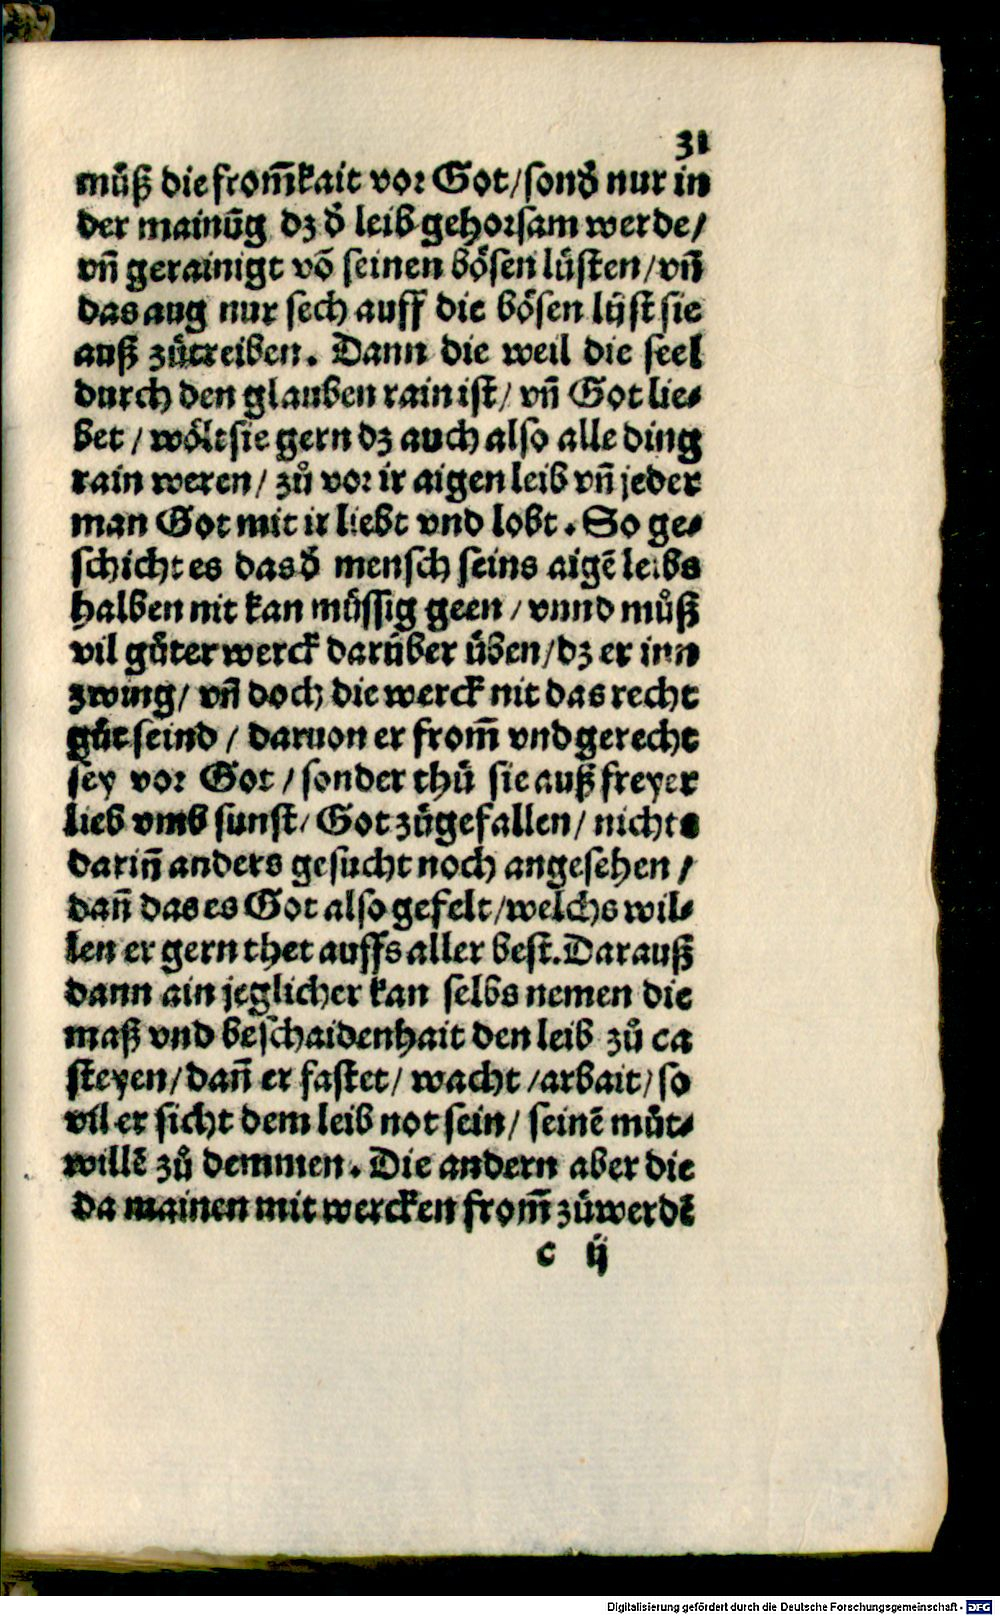 31
muͤß die from̄kait vor Got/sonð nur in
der mainūg dz ð leib gehorsam werde/
vn̄ gerainigt vō seinen boͤsen luͤsten/vn̄
das aug nur sech auff die boͤsen lüst sie
auß zuͤtreiben. Dann die weil die seel
durch den glauben rain ist/ vn̄ Got lie⸗
bet / woͤlt sie gern dz auch also alle ding
rain weren/ zuͦ vor ir aigen leib vn̄ jeder
man Got mit ir liebt vnd lobt. So ge⸗
schicht es das ð mensch seins aigē leibs
halben nit kan muͤssig geen / vnnd muͦß
vil guͤter werck daruͤber uͤben/dz er inn
zwing/ vn̄ doch die werck nit das recht
guͤt seind / daruon er from̄ vnd gerecht
sey vor Got / sonder thuͤ sie auß freyer
lieb vmb sunst/ Got zuͤgefallen/ nichts
darin̄ anders gesucht noch angesehen /
dan̄ das es Got also gefelt/welchs wil⸗
len er gern thet auffs aller best. Darauß
dann ain jeglicher kan selbs nemen die
maß vnd beschaidenhait den leib zuͦ ca
steyen/dan̄ er fastet/ wacht /arbait/ so
vil er sicht dem leib not sein/ seinē muͤt⸗
willē zuͦ demmen. Die andern aber die
da mainen mit wercken from̄ zuͤwerdē
c ij
Digitalisierung gefördert durch die Deutsche Forschungsgemeinschaft - DFG